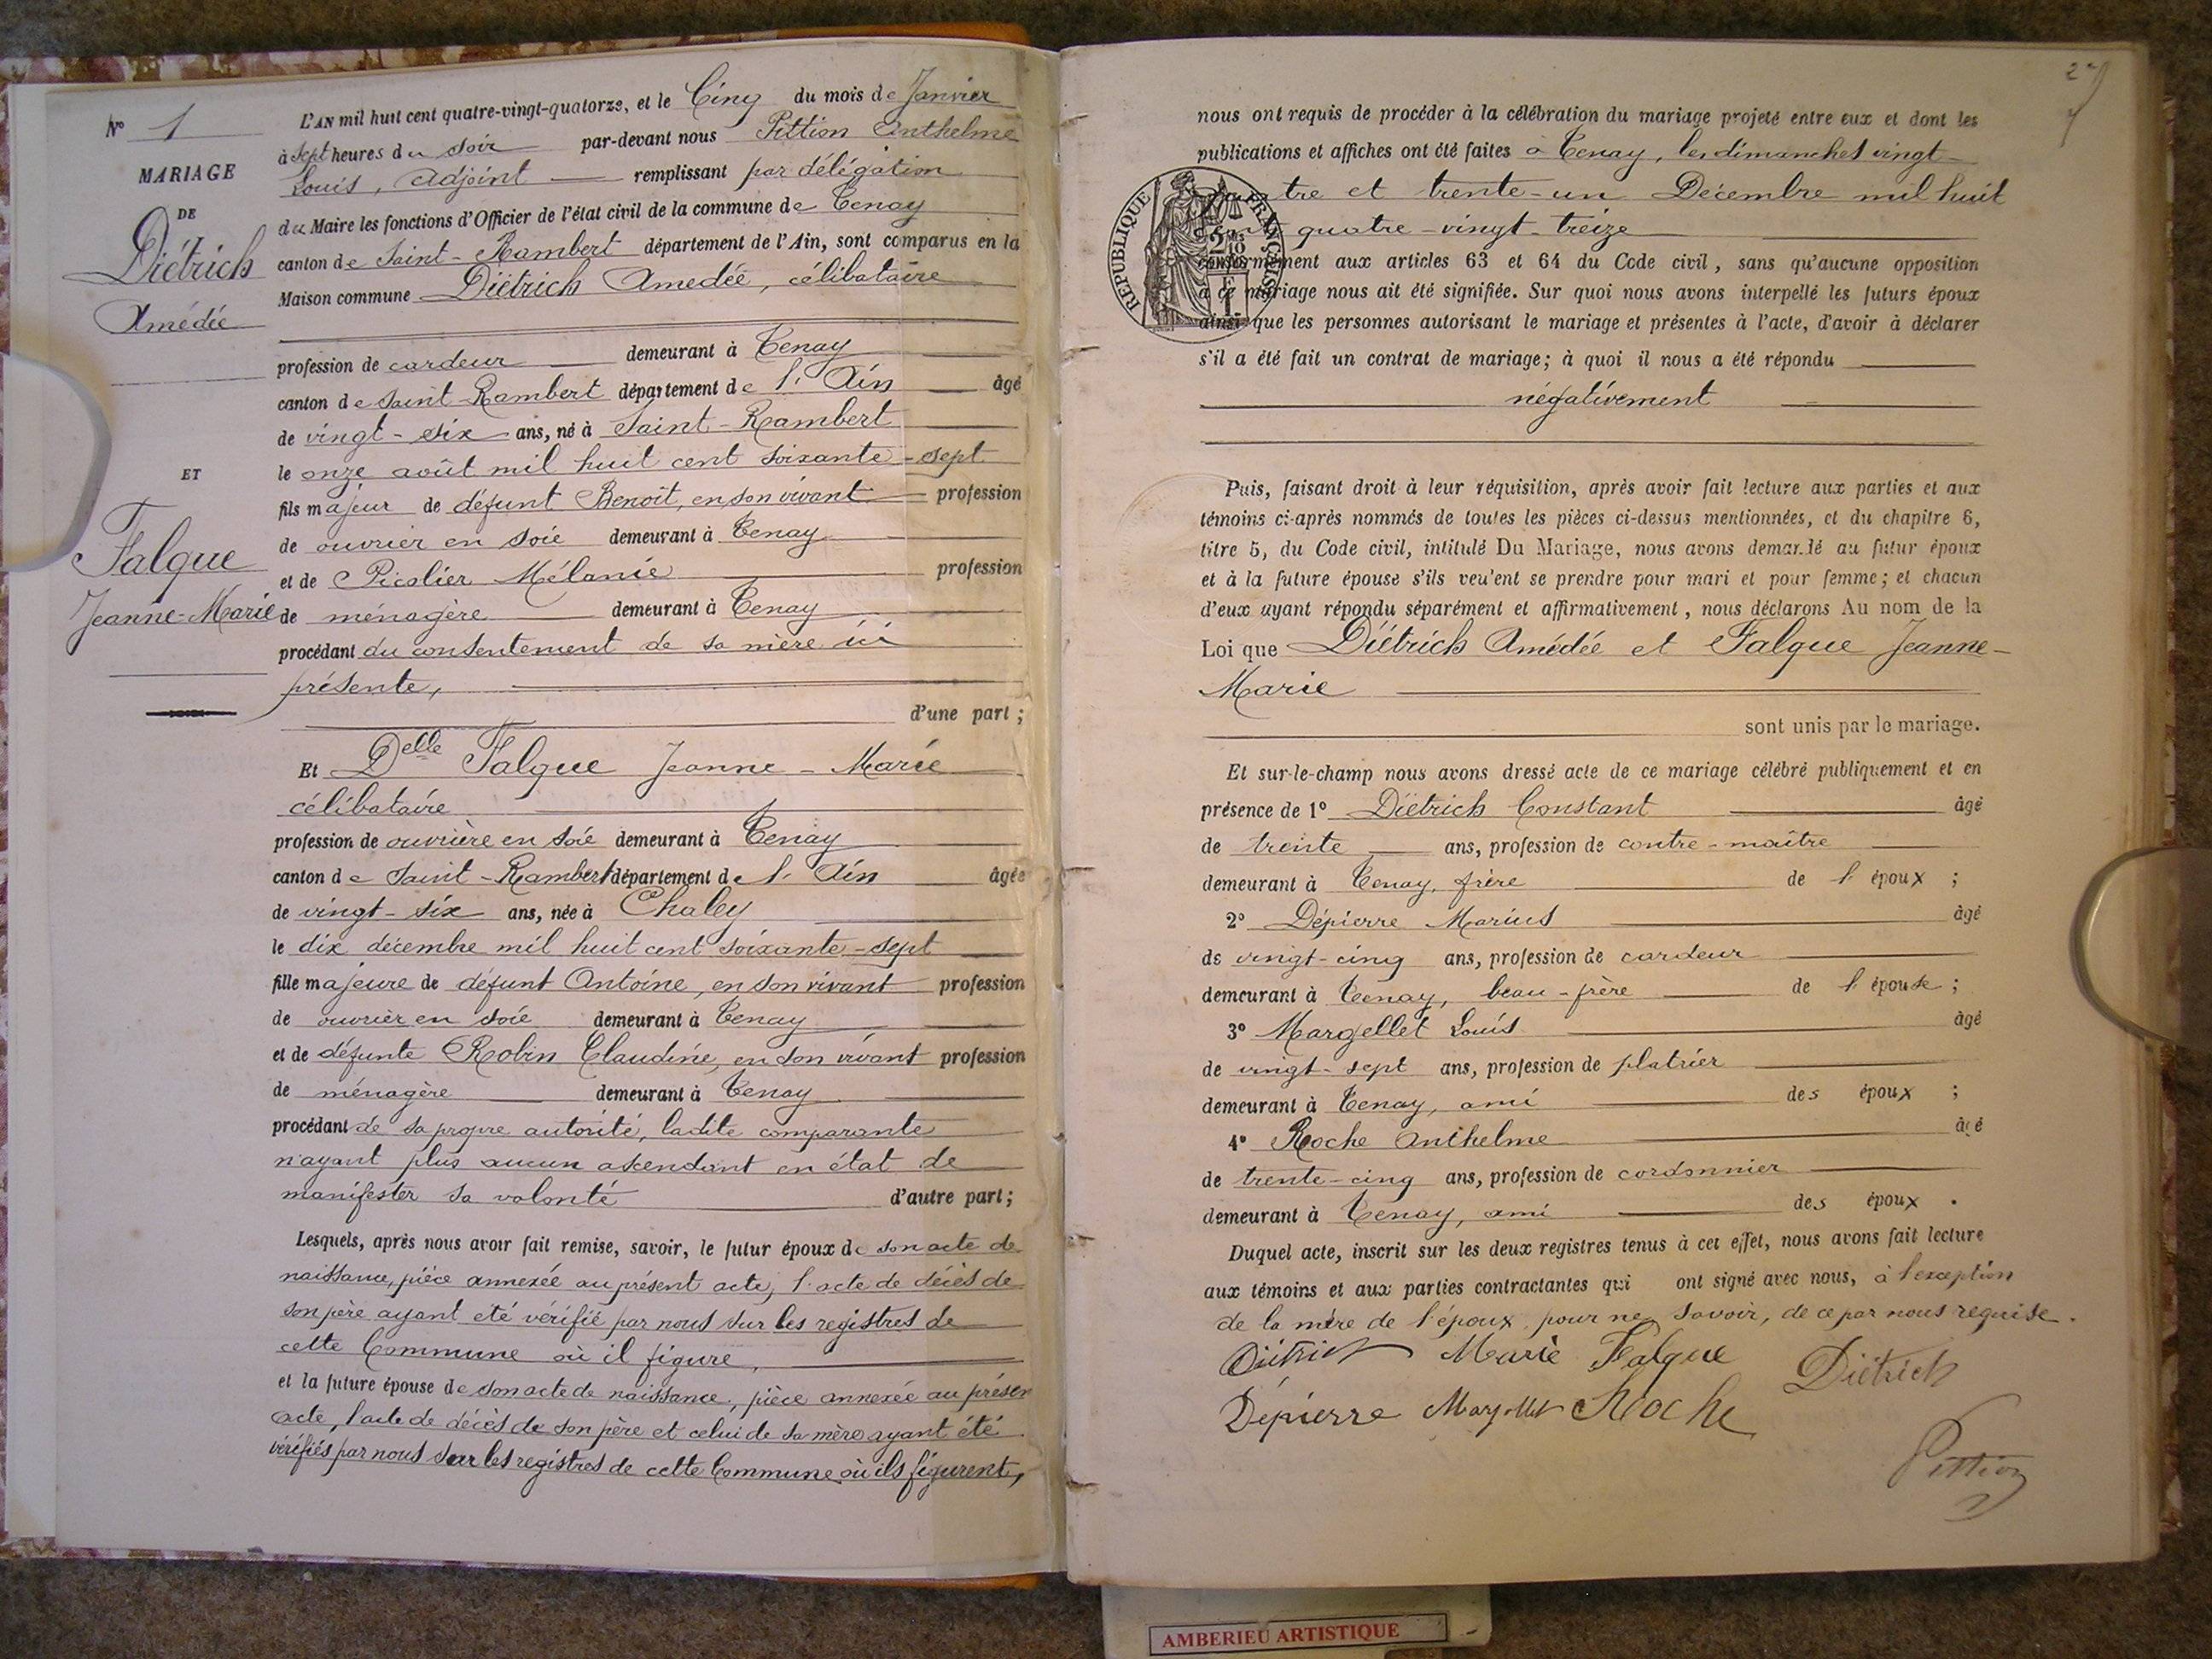 N° 1
MARIAGE
DE
Diétrich
Amédée
ET
Falque
Jeanne-Marie
L'AN mil huit cent quatre-vingt-quatorze, et le Cinq du mois de Janvier
à Sept heures du soir par-devant nous Pittion Anthelme
Louis, Adjoint remplissant par délégation
du Maire les fonctions d'Officier de l'état civil de la commune de Tenay
canton de Saint-Rambert département de l'Ain, sont comparus en la
Maison commune Diétrich Amedée, célibataire
profession de cardeur demeurant à Tenay
canton de Saint-Rambert département de l'Ain âgé
de vingt-six ans, né à Saint-Rambert
le onze août mil huit cent soixante-sept
fils majeur de défunt Benoît, en son vivant profession
de ouvrier en soie demeurant à Tenay
et de Picolier Mélanie profession
de ménagère demeurant à Tenay
procédant du consentement de sa mère ici
présente,
d'une part;
Et Delle Falque Jeanne-Marie
célibataire
profession de ouvrière en soie demeurant à Tenay
canton de Saint-Rambert département de l'Ain âgée
de vingt-six ans, née à Chaley
le dix décembre mil huit cent soixante-sept
fille majeure de défunt Antoine, en son vivant profession
de ouvrier en soie demeurant à Tenay
et de défunte Robin Claudine, en son vivant profession
de ménagère demeurant à Tenay
procédant de sa propre autorité, ladite comparante
n'ayant plus aucun ascendant en état de
manifester sa volonté d'autre part;
Lesquels, après nous avoir fait remise, savoir, le futur époux de son acte de
naissance, pièce annexée au présent acte, l'acte de décès de
son père ayant été vérifié par nous sur les registres de
cette Commune où il figure,
et la future épouse de son acte de naissance, pièce annexée au présen
acte, l'acte de décès de son père et celui de sa mère ayant été
vérifiés par nous sur les registres de cette Commune où ils figurent,
nous ont requis de procéder à la célébration du mariage projeté entre eux et dont les
publications et affiches ont été faites à Tenay, les dimanches vingt-
quatre et trente-un Décembre mil huit
cent quatre-vingt-treize
conformément aux articles 63 et 64 du Code civil, sans qu'aucune opposition
à ce mariage nous ait été signifiée. Sur quoi nous avons interpellé les futurs époux
ainsi que les personnes autorisant le mariage et présentes à l'acte, d'avoir à déclarer
s'il a été fait un contrat de mariage; à quoi il nous a été répondu
négativement
REPUBLIQUE FRANÇAISE
Puis, faisant droit à leur réquisition, après avoir fait lecture aux parties et aux
témoins ci-après nommés de toutes les pièces ci-dessus mentionnées, et du chapitre 6,
titre 5, du Code civil, intitulé Du Mariage, nous avons demandé au futur époux
et à la future épouse s'ils veulent se prendre pour mari et pour femme; et chacun
d'eux ayant répondu séparément et affirmativement, nous déclarons Au nom de la
Loi que Diétrich Amédée et Falque Jeanne-
Marie
sont unis par le mariage.
Et sur-le-champ nous avons dressé acte de ce mariage célébré publiquement et en
présence de 1° Diétrich Constant âgé
de trente ans, profession de contre-maître
demeurant à Tenay, frère de l'époux;
2° Dépierre Marius âgé
de vingt-cinq ans, profession de cardeur
demeurant à Tenay, beau-frère de l'épouse;
3° Margellet Louis âgé
de vingt-sept ans, profession de platrier
demeurant à Tenay, ami des époux;
4° Roche Anthelme âgé
de trente-cinq ans, profession de cordonnier
demeurant à Tenay, ami des époux.
Duquel acte, inscrit sur les deux registres tenus à cet effet, nous avons fait lecture
aux témoins et aux parties contractantes qui ont signé avec nous, à l'exception
de la mère de l'époux, pour ne savoir, de ce par nous requise.
Diétrich Marie Falque Diétrich
Dépierre Margellet Roche
Pittion
AMBERIEU ARTISTIQUE